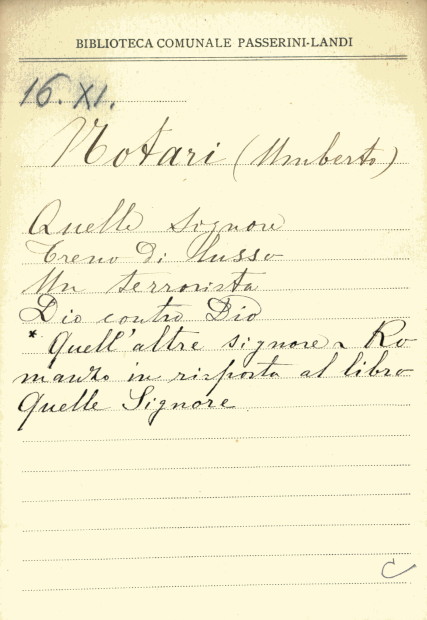 BIBLIOTECA COMUNALE PASSERINI-LANDI
16. XI.
Notari (Umberto)
Quelle signore
Treno di lusso
Un terrorista
Dio contro Dio
* Quell'altre signore - Ro
manzo in risposta al libro
Quelle Signore
C